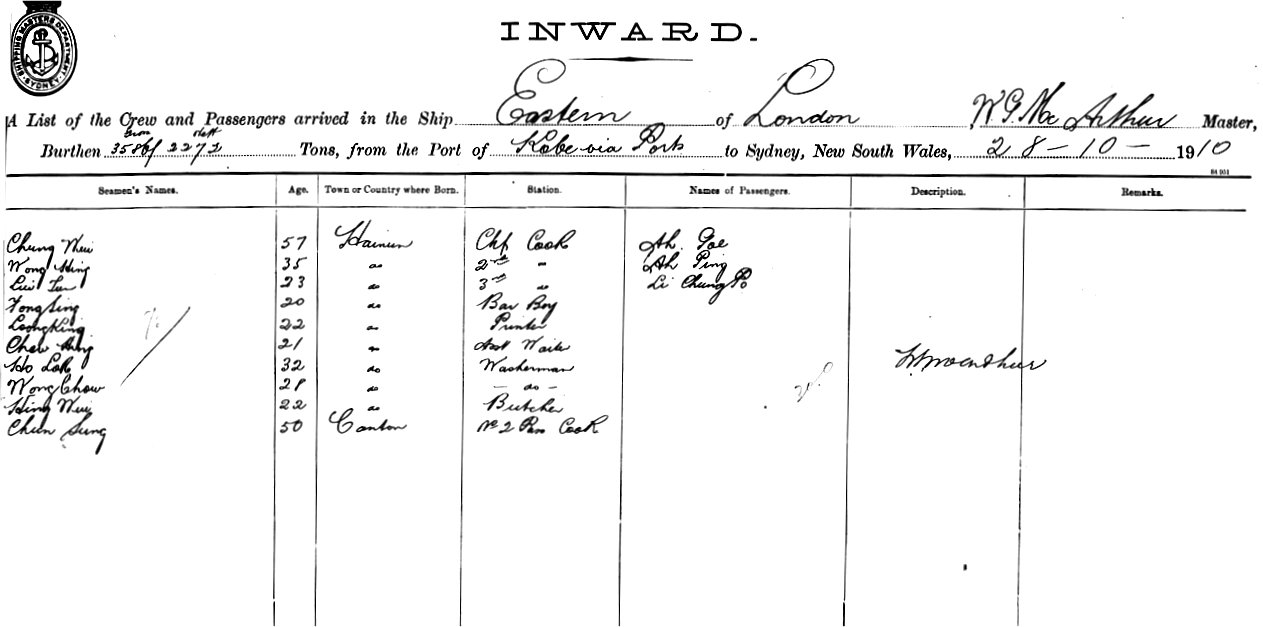 SHIPPING MASTERS DEPARTMENT SYDNEY
INWARD.
A List of the Crew and Passengers arrived in the Ship Eastern of London W G Mac Arthur Master,
Burthen Gross 3586/ Nett 2272 Tons, from the Port of Kobe via Ports to Sydney, New South Wales, 28-10-1910
Seamen's Names. Age. Town or Country where Born. Station. Names of Passengers. Description. Remarks.
Chung Wui 57 Hainan Chf Cook Ah Goe
Wong Hing 35 do 2nd " Ah Ping
Lui Tun 23 do 3rd do Li Chung Po
Fong Sing 20 do Bar Boy
Loong King 22 do Printer
Chew Hing 21 do Asst Waiter
Ho Lok 32 do Washerman
Wong Chow 28 do - do -
Hing Wui 22 do Butcher
Chun Sung 50 Canton No 2 Cook